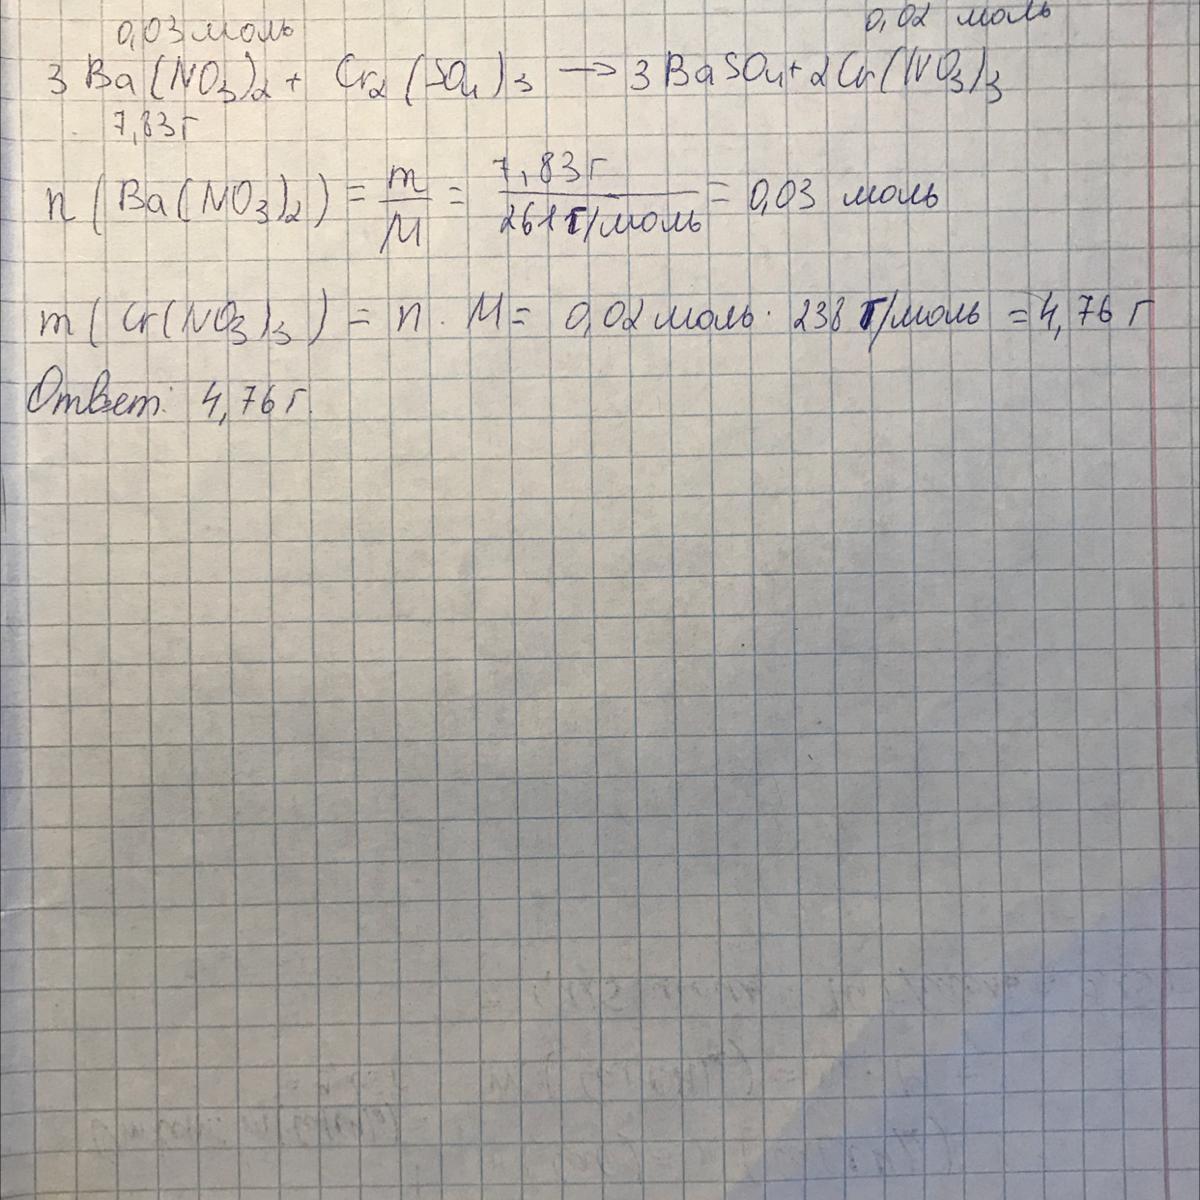 0,03 моль 0,02 моль
3 Ba(NO3)2 + Cr2(SO4)3 → 3 BaSO4 + 2Cr(NO3)3
7,83 г
n (Ba(NO3)2) = m/M = 7,83 г/261 г/моль = 0,03 моль
m (Cr(NO3)3) = n · M = 0,02 моль · 238 г/моль = 4,76 г
Ответ: 4,76 г.